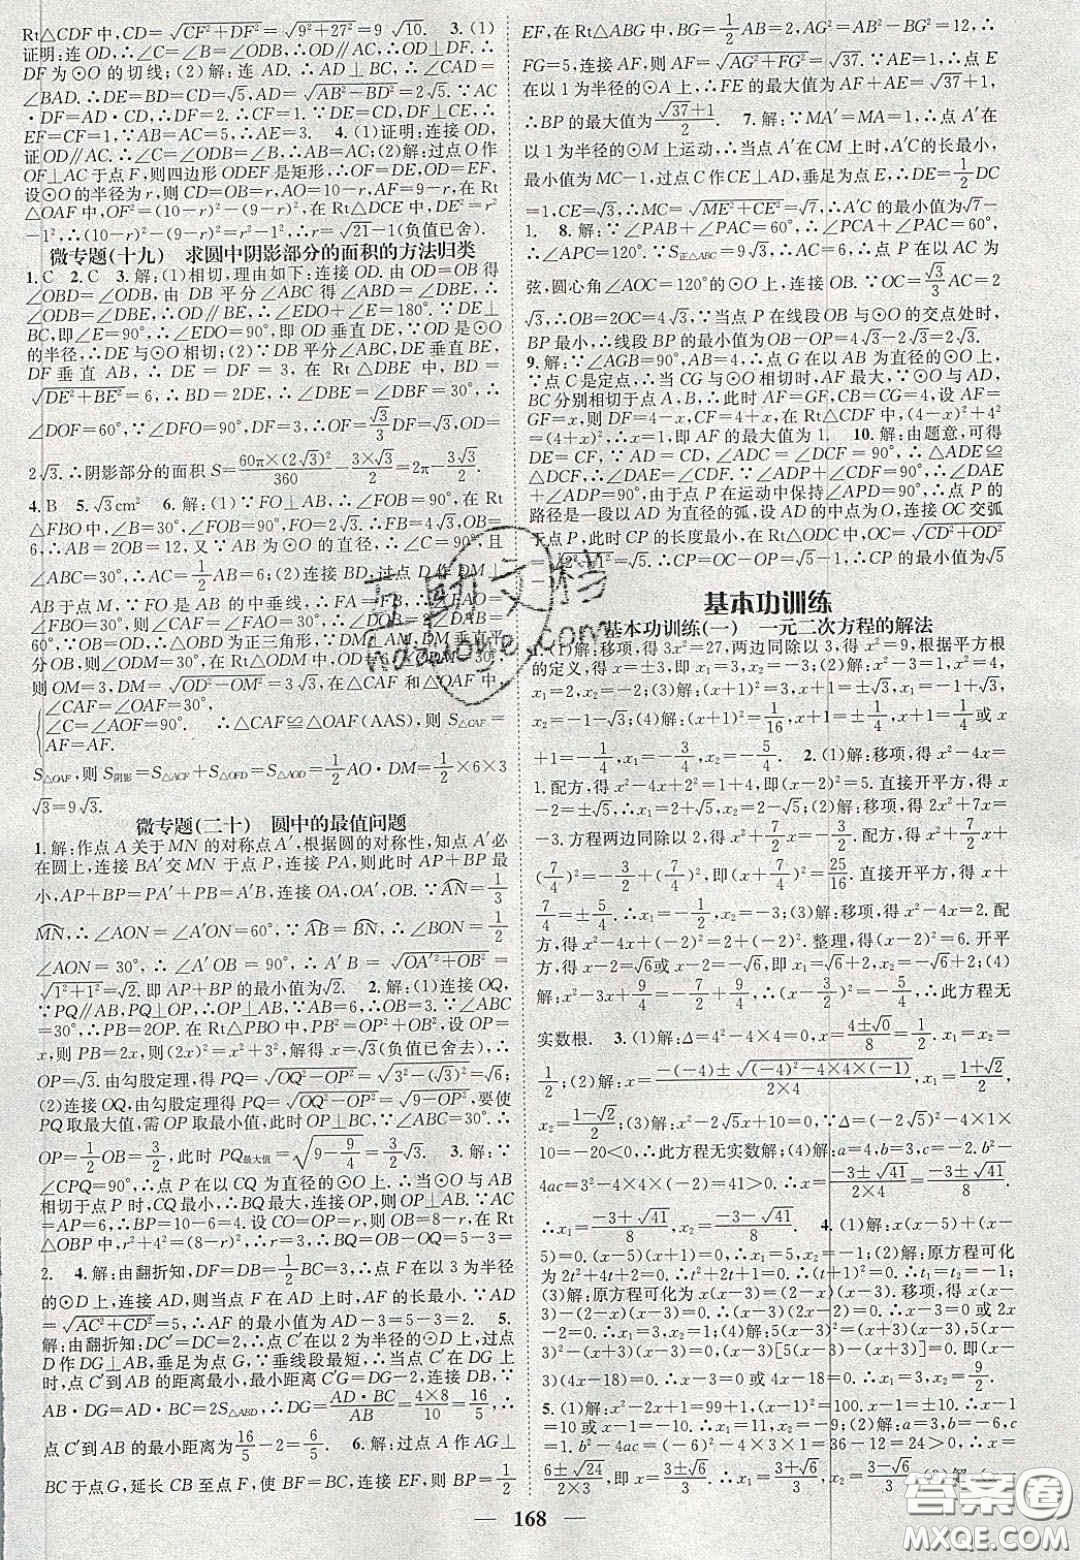 Rt△CDF 中,CD=√(CF²+DF²)=√(9²+27²)=9√10. 3.(1)
证明:连 OD,∴∠C=∠B=∠ODB,∴DF⊥OD.∴
DF 为⊙O 的切线;(2)解:连 AD.∴AD⊥BC,∴∠CAD=
∠BAD.∴DE=BD=CD=√5,AD=√(AB²−BD²)=2√5.∵AC
·DF=AD·CD,∴DF=2.∴CF=1.∵DE=CD,∴
EF=CF=1,∵AB=AC=5,∴AE=3. 4.(1)证明:连接 OD,
证 OD∥AC.∴∠C=∠B,∴AB=AC;(2)解:过点 O 作
OF⊥AC 于点 F,则四边形 ODEF 是矩形,∴OF=DE,OD=EF,
设⊙O 的半径为 r,则 CD=OB=r,AO=10−r,AF=9−r,在 Rt
△OAF 中,OF²=(10−r)²−(9−r)²,在 Rt△DCE 中,DE²=r²
−1²,∴(10−r)²−(9−r)²=r²−1².∴r=√21−1(负值已舍).
微专题(十九) 求圆中阴影部分的面积的方法归类
1.C 2.C 3.解:(1)相切,理由如下:连接 OD. 由 OB=OD 得
∠OBD=∠ODB,由 DB 平分∠ABC 得∠ABD=∠DBE,∴
∠ODB=∠DBE,∴OD∥BE,∴∠EDO+∠E=180°. ∵DE⊥
BC,即∠E=90°,∴∠EDO=90°,即 OD 垂直 DE,∵OD 是⊙O
的半径,∴DE 与⊙O 相切;(2)∵DB 平分∠ABC,DE 垂直 BE,
DF 垂直 AB,∴DE=DF=3,在 Rt△BDE 中,BD=
√(DE²+BE²)=6,∴BD=2DE,∴∠DBE=∠DBF=30°,∴
∠DOF=60°,∵∠DFO=90°,DF=3,∴OF=√3/3 DF=√3,∴OD=
2√3.∴阴影部分的面积 S=60π×(2√3)²/360−3×√3/2=2π−3√3/2.
4.B 5.√3cm² 6.解:(1)∵FO⊥AB,∴∠FOB=90°,在 Rt
△FBO 中,∠B=30°,∠FOB=90°,FO=2√3.∴FB=4√3,OB=
6,∴AB=2OB=12,又∵AB 为⊙O 的直径,∴∠C=90°,且
∠ABC=30°,∴AC=1/2AB=6;(2)连接 BD,过点 D 作 DM⊥
AB 于点 M.∵FO 是 AB 的中垂线,∴FA=FB,∴∠FAO=
∠FBO=30°,∴∠DAB=60°,∴△ODB 为正三角形,∵DM 垂直平
分 OB,∴∠ODM=30°,在 Rt△ODM 中,OD=6,∠ODM=30°
则 OM=3,DM=√(OD²−OM²)=3√3,在△CAF 和△OAF 中,
∠CAF=∠OAF,
∠C=∠AOF=90°, ∴△CAF≌△OAF(AAS),则 S△CAF=
AF=AF.
S△OAF,则 S阴影=S△ACF+S△OFD=S△AOD=1/2AO·DM=1/2×6×3
√3=9√3.
微专题(二十) 圆中的最值问题
1.解:作点 A 关于 MN 的对称点 A′,根据圆的对称性,知点 A′必
在圆上,连接 BA′交 MN 于点 P,连接 PA,则此时 AP+BP 最
小,AP+BP=PA′+PA=A′B,连接 OA,OA′,OB.∵AN=1/3
MN,∴∠AON=∠A′ON=60°,∵AB=BN,∴∠BON=1/2
∠AON=30°,∴∠A′OB=90°,∴A′B=√(OA′²+OB²)=
√(1²+1²)=√2. 即 AP+BP 的最小值为√2. 2.解:(1)连接 OQ,∵
∵PQ∥AB,PQ⊥OP,∴OP⊥AB,∵AB=6,∴OB=3.∵∠ABC
=30°,∴PB=2OP. 在 Rt△PBO 中,PB²=OP²+OB²,设 OP=
x,则 PB=2x,则(2x)²=x²+3²,解得 x=√3(负值已舍去),∴OP
=√3. 由勾股定理,得 PQ=√(OQ²−OP²)=√(3²−(√3)²)=√6;
(2)连接 OQ,由勾股定理得 PQ=√(OQ²−OP²)=√(9−OP²),要使
PQ 取最大值,需 OP 取最小值,此时 OP⊥BC,∵∠ABC=30°,∴
OP=1/2OB=3/2,此时 PQ最大值=√(9−9/4)=3√3/2. 3.解:∵
∠CPQ=90°,∴点 P 在以 CQ 为直径的⊙O 上.∴⊙O 与 AB
相切于点 P 时,CQ 最小,∴BQ 最大,连接 OP,则 OP⊥AB,∵AC
=AP=6,∴BP=10−6=4. 设 CO=OP=r,则 OB=8−r,在 Rt
△OBP 中,r²+4²=(8−r)².∴r=3,∴BQ=OB−OQ=5−3=
2. 4.解:由翻折知,DF=DB=1/2BC=3,∴点 F 在以 3 为半径
的⊙D 上,连接 AD,则当点 F 在 AD 上时,AF 的长最小.∵AD
=√(AC²+CD²)=5,∴AF 的最小值为 AD−3=5−3=2. 5.
解:由翻折知,DC′=DC=2,∴点 C′在以 2 为半径的⊙D 上,过点
D 作 DG⊥AB,垂足为点 G,∵垂线段最短,∴当点 C′在 DG 上
时,点 C′到 AB 的距离最小,最小距离 C′G=DG−2,连接 DB,∵
AB·DG=AD·BC=2S△ABD,∴DG=AD·BC/AB=4×8/10=16/5,∴
点 C′到 AB 的最小距离为16/5−2=6/5. 6.解:过点 A 作 AG⊥
BC 于点 G,延长 CB 至点 F,使 BF=BC,连接 EF,则 BP=1/2
EF,在 Rt△ABG 中,BG=1/2AB=2,AG=2√3,∵BF=BC=12,∴
FG=5,连接 AF,则 AF=√(AG²+FG²)=√37.∵AE=1,∴点 E
在以 1 为半径的⊙A 上,∴FE 的最大值为 AF+AE=√37+1,
∴BP 的最大值为(√37+1)/2. 7.解:∵MA′=MA=1,∴点 A′在
以 1 为半径的⊙M 上运动,∴当点 A′在 CM 上时,A′C 的长最小,
最小值为 MC−1,过点 C 作 CE⊥AD,垂足为点 E,∴DE=1/2DC
=1,CE=√3,∴MC=√(ME²+CE²)=√7,∴A′C 的最小值为√7−
1. 8.解:∵∠PAB+∠PAC=60°,∠PCA=∠PAB,∴∠PCA
+∠PAC=60°,∴∠APC=120°,∵S正△ABC=9√3,∴点 P 在以 AC 为
弦,圆心角∠AOC=120°的⊙O 上,连接 OB.∵OC=√3/3AC=2
√3,∴OB=2OC=4√3,∵当点 P 在线段 OB 与⊙O 的交点处时,
BP 最小,∴线段 BP 的最小值为 OB−OP=4√3−2√3=2√3.
9.解:∵∠AGB=90°,AB=4,∴点 G 在以 AB 为直径的⊙O 上,
∵点 C 是定点,∴当 CG 与⊙O 相切时,AF 最大,∵⊙O 与 AD,
BC 分别相切于点 A,B,∴此时 AF=GF,CB=CG=4,设 AF=
GF=x,则 DF=4−x,CF=4+x,在 Rt△CDF 中,(4−x)²+4²
=(4+x)²,∴x=1,即 AF 的最大值为 1. 10.解:由题意,可得
DE=CF,∵AD=DC,∠ADE=∠DCF=90°,∴△ADE≌
△DCF,∴∠DAE=∠CDF,∵∠ADP+∠CDF=90°,∴∠DAE
+∠ADP=90°,由于点 P 在运动中保持∠APD=90°,∴点 P 的
路径是一段以 AD 为直径的弧,设 AD 的中点为 O,连接 OC 交弧
于点 P,此时 CP 的长度最小,在 Rt△ODC 中,OC=√(CD²+OD²)
=√(2²+1²)=√5,∴CP=OC−OP=√5−1,∴CP 的最小值为√5
−1.
基本功训练
基本功训练(一) 一元二次方程的解法
1.(1)解:移项,得 3x²=27,两边同除以 3,得 x²=9,根据平方根
的定义,得 x=±3,即 x₁=3,x₂=−3;(2)解:x²=4,
x₁=2,x₂=−2;(3)解:(x+1)²=3,x+1=±√3,x₁=−1+√3,
x₂=−1−√3;(4)解:(x+1)²=1/16,x+1=±1/4,x+1=1/4或 x
+1=−1/4,x₁=−3/4,x₂=−5/4. 2.(1)解:移项,得 x²−4x=
1. 配方,得 x²−4x+2²=1+4,即(x−2)²=5. 直接开平方,得 x−2
=±√5,∴x₁=2+√5,x₂=2−√5;(2)解:移项,得 2x²+7x=
−3. 方程两边同除以 2,得 x²+7/2x=−3/2. 配方,得 x²+7/2x+
(7/4)²=−3/2+(7/4)²,即(x+7/4)²=25/16. 直接开平方,得 x+
7/4=±5/4.∴x₁=−1/2,x₂=−3;(3)解:移项,得 x²−4x=2. 配
方,得 x²−4x+(−2)²=2+(−2)². 整理,得(x−2)²=6. 开平
方,得 x−2=√6或 x−2=−√6,∴x₁=√6+2,x₂=−√6+2;(4)
解:x²−3x+9/4=−7/2+9/4,∴(x−3/2)²=−5/4,∴此方程无
实数根. 3.(1)解:Δ=4²−4×4=0,x=(4±√0)/8=1/2. x₁=x₂=
1/2;(2)解:x=(−(−4)±√((−4)²−4×4×(−1)))/(2×4),x₁=(1+√2)/2,
x₂=(1−√2)/2;(3)解:x²−2√5x+10=0,∵Δ=(−2√5)²−4×1×
10=−20<0,∴此方程无实数解;(4)解:a=4,b=3,c=−2. b²−
4ac=3²−4×4×(−2)=41>0.∴x=(−3±√41)/(2×4)=(−3±√41)/8.
∴x₁=(−3+√41)/8,x₂=(−3−√41)/8. 4.(1)解:x(x−5)+(x−
5)=0.∴(x−5)(x+1)=0.∴x₁=5,x₂=−1;(2)解:原方程可化
为 2t²+4t+2=0.∴t²+2t+1=0.∴(t+1)²=0.∴t₁=t₂=−1;
(3)解:原方程可化为 x(x−3)=(2−x)(x−3).移项,得 x(x−
3)−(2−x)(x−3)=0.∴(x−3)(2x−2)=0.∴x−3=0 或 2x−
2=0.∴x₁=3,x₂=1;
(4)18=0.∴4x−18=0.∴x₁=3,x₂=9/2.
5.(1)解:x²−2x+1=(−1)²,∴(x−1)²=100.∴x−1=
=10 或 x−1=−10,∴x₁=11,x₂=−9;(2)解:a=3,b=−6,
c=1. b²−4ac=(−6)²−4×3×1=36−12=24>0,∴x=
(6±√24)/(2×3),即 x=(3±√6)/3.∴x₁=(3+√6)/3,x₂=(3−√6)/3
168
互助文档
huzhuone.com
答案圈
MXQE.COM